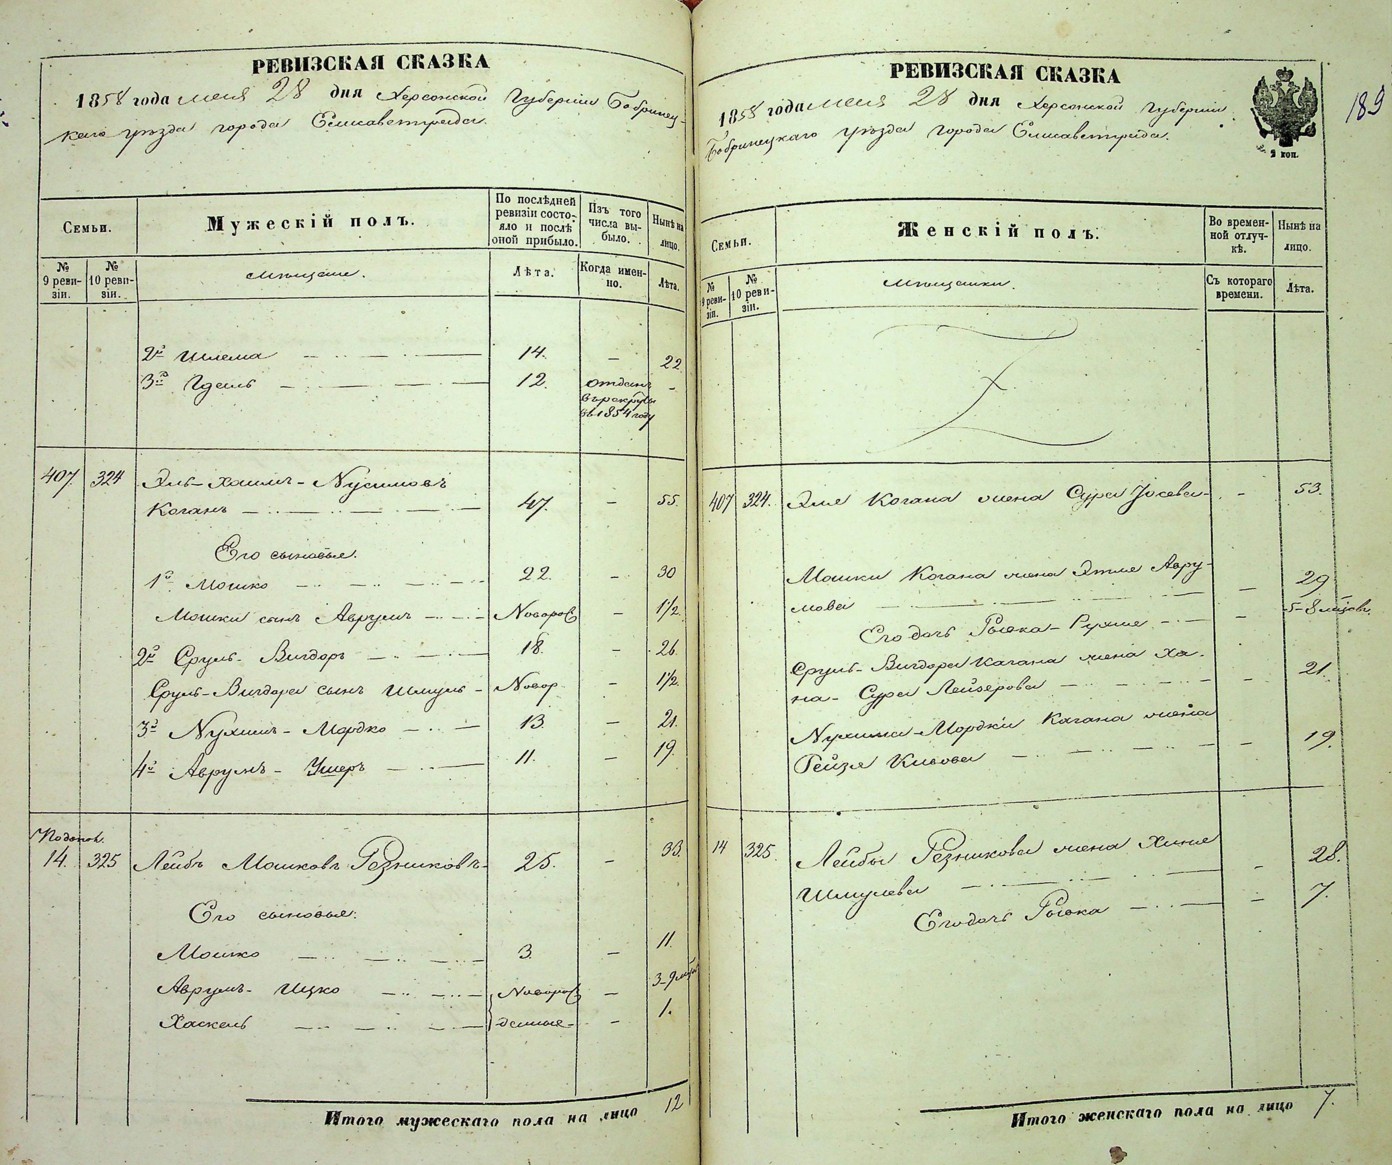 РЕВИЗСКАЯ СКАЗКА
1858 года мая 28 дня Херсонской Губернии Бобринец-
каго уѣзда города Елисаветграда.
Семьи.
Мужескій полъ.
По послѣдней ревизіи состояло и послѣ оной прибыло.
Изъ того числа выбыло.
Нынѣ на лицо.
№ 9 ревизіи.
№ 10 ревизіи.
мѣщане.
Лѣта.
Когда именно.
Лѣта.
2й Шлема 14. — 22
3й Гдаль 12. отданъ въ рекруты въ 1854 году —
407 324 Эль-Хаимъ-Нусимовъ
Коганъ 47. — 55.
Его сыновья:
1й Мошко 22. — 30
Мошки сынъ Аврумъ Новорож — 1½
2й Сруль-Вигдоръ 18. — 26
Сруль-Вигдора сынъ Шмуль Новор — 1½
3й Нухимъ-Мордко 13. — 21.
4й Аврумъ-Ушеръ 11. — 19.
14. 325 Лейбъ Мошковъ Резниковъ 25. — 33.
Его сыновья:
Мошко 3. — 11.
Аврумъ-Ицко Новорож — 3-9 мѣс
Хаскель денные — 1.
Итого мужескаго пола на лицо 12
РЕВИЗСКАЯ СКАЗКА
1858 года мая 28 дня Херсонской Губернии
Бобринецкаго уѣзда города Елисаветграда.
2 коп.
189
Семьи.
Женскій полъ.
Во временной отлучкѣ.
Нынѣ на лицо.
№ 9 ревизіи.
№ 10 ревизіи.
мѣщанки.
Съ котораго времени.
Лѣта.
407 324. Эля Когана жена Сура Іосева — 53.
Мошки Когана жена Этля Авру-
мова — 29
Его дочь Рывка-Рухля — 5-8 мѣсяц.
Сруль-Вигдора Кагана жена Ха-
на-Сура Лейзерова 21.
Нухима-Мордки Кагана жена
Рейзя Кивова — 19.
14 325. Лейбы Резникова жена Хина
Шмулева — 28.
Его дочь Рывка — 7.
Итого женскаго пола на лицо 7.